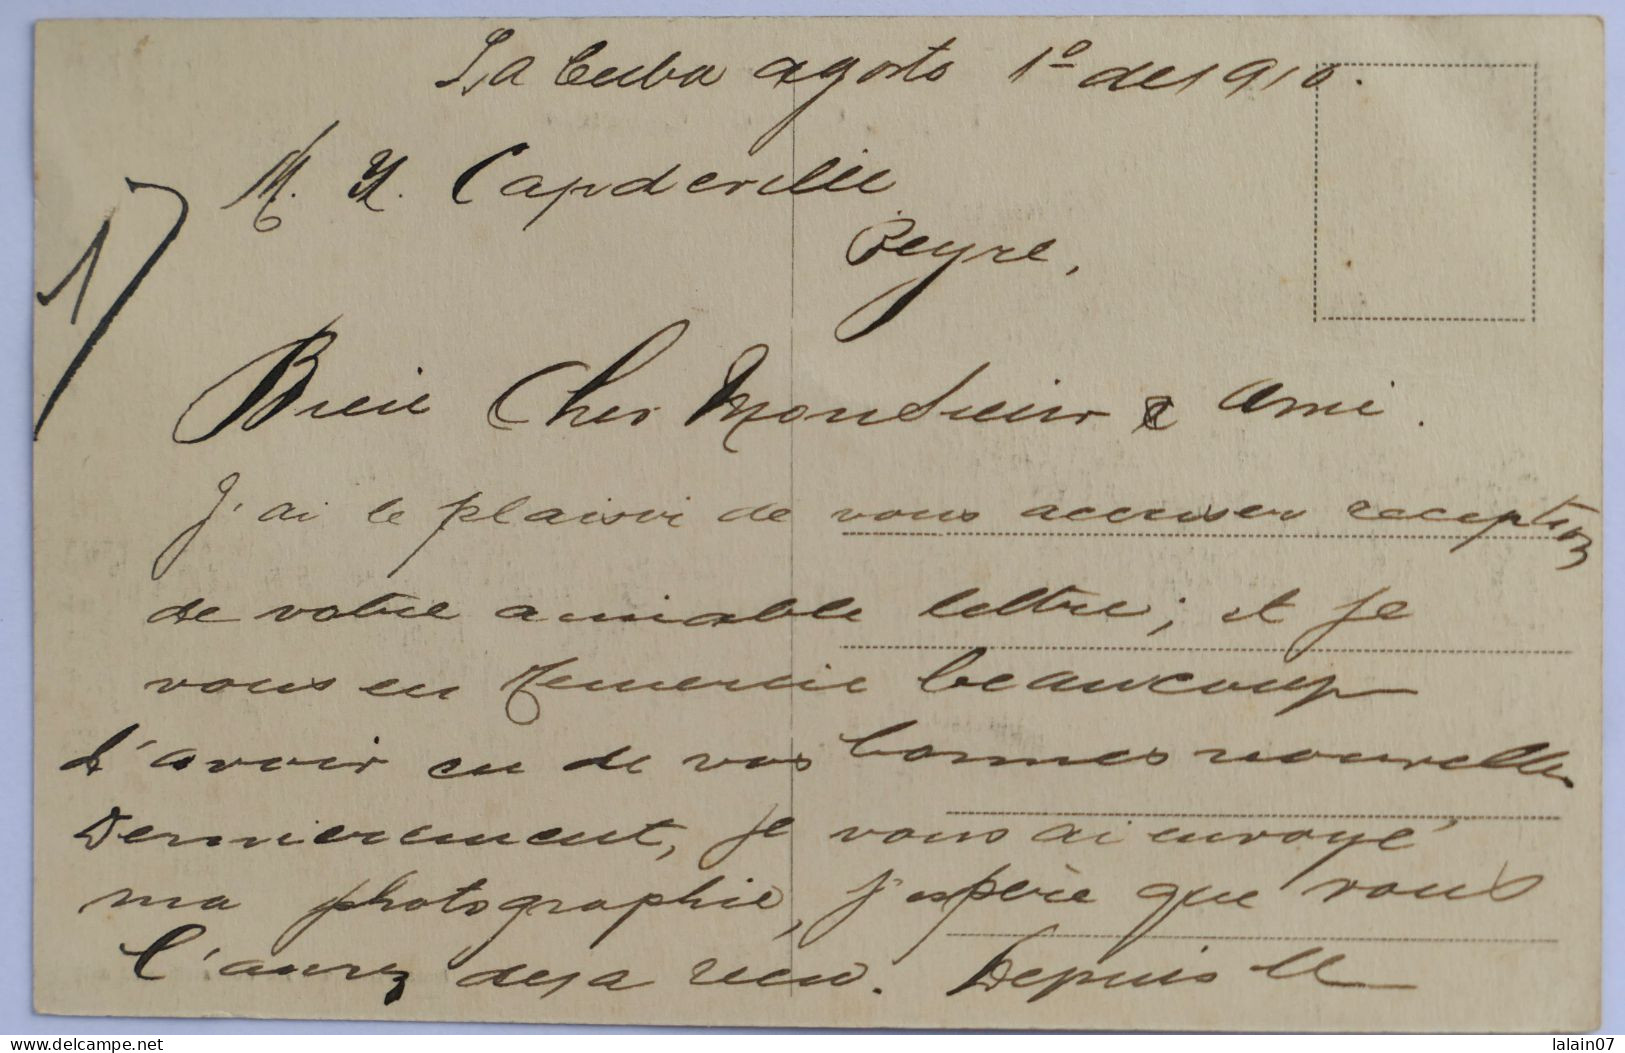 La Cuba agosto 1º de 1910.
M. Y. Capdeville
Peyre,
1)
Bien Cher Monsieur & Ami.
J'ai le plaisir de vous accuser reception
de votre aimable lettre; et je
vous en remercie beaucoup
d'avoir eu de vos bonnes nouvelles
Dernierement, je vous ai envoyé
ma photographie, j'espère que vous
l'aurez deja recu. Depuis le
www.delcampe.net
lalain07